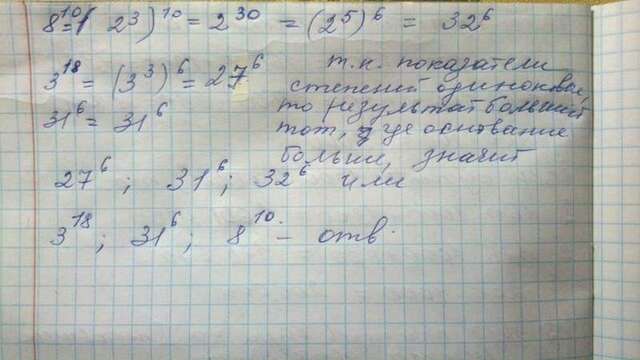 8¹⁰ = (2³)¹⁰ = 2³⁰ = (2⁵)⁶ = 32⁶
3¹⁸ = (3³)⁶ = 27⁶
31⁶ = 31⁶
т.к. показатели
степений одинаковы,
то результат больший
тот, где основание
больш, значит
27⁶ ; 31⁶ ; 32⁶ или
3¹⁸ ; 31⁶ ; 8¹⁰ – отв.